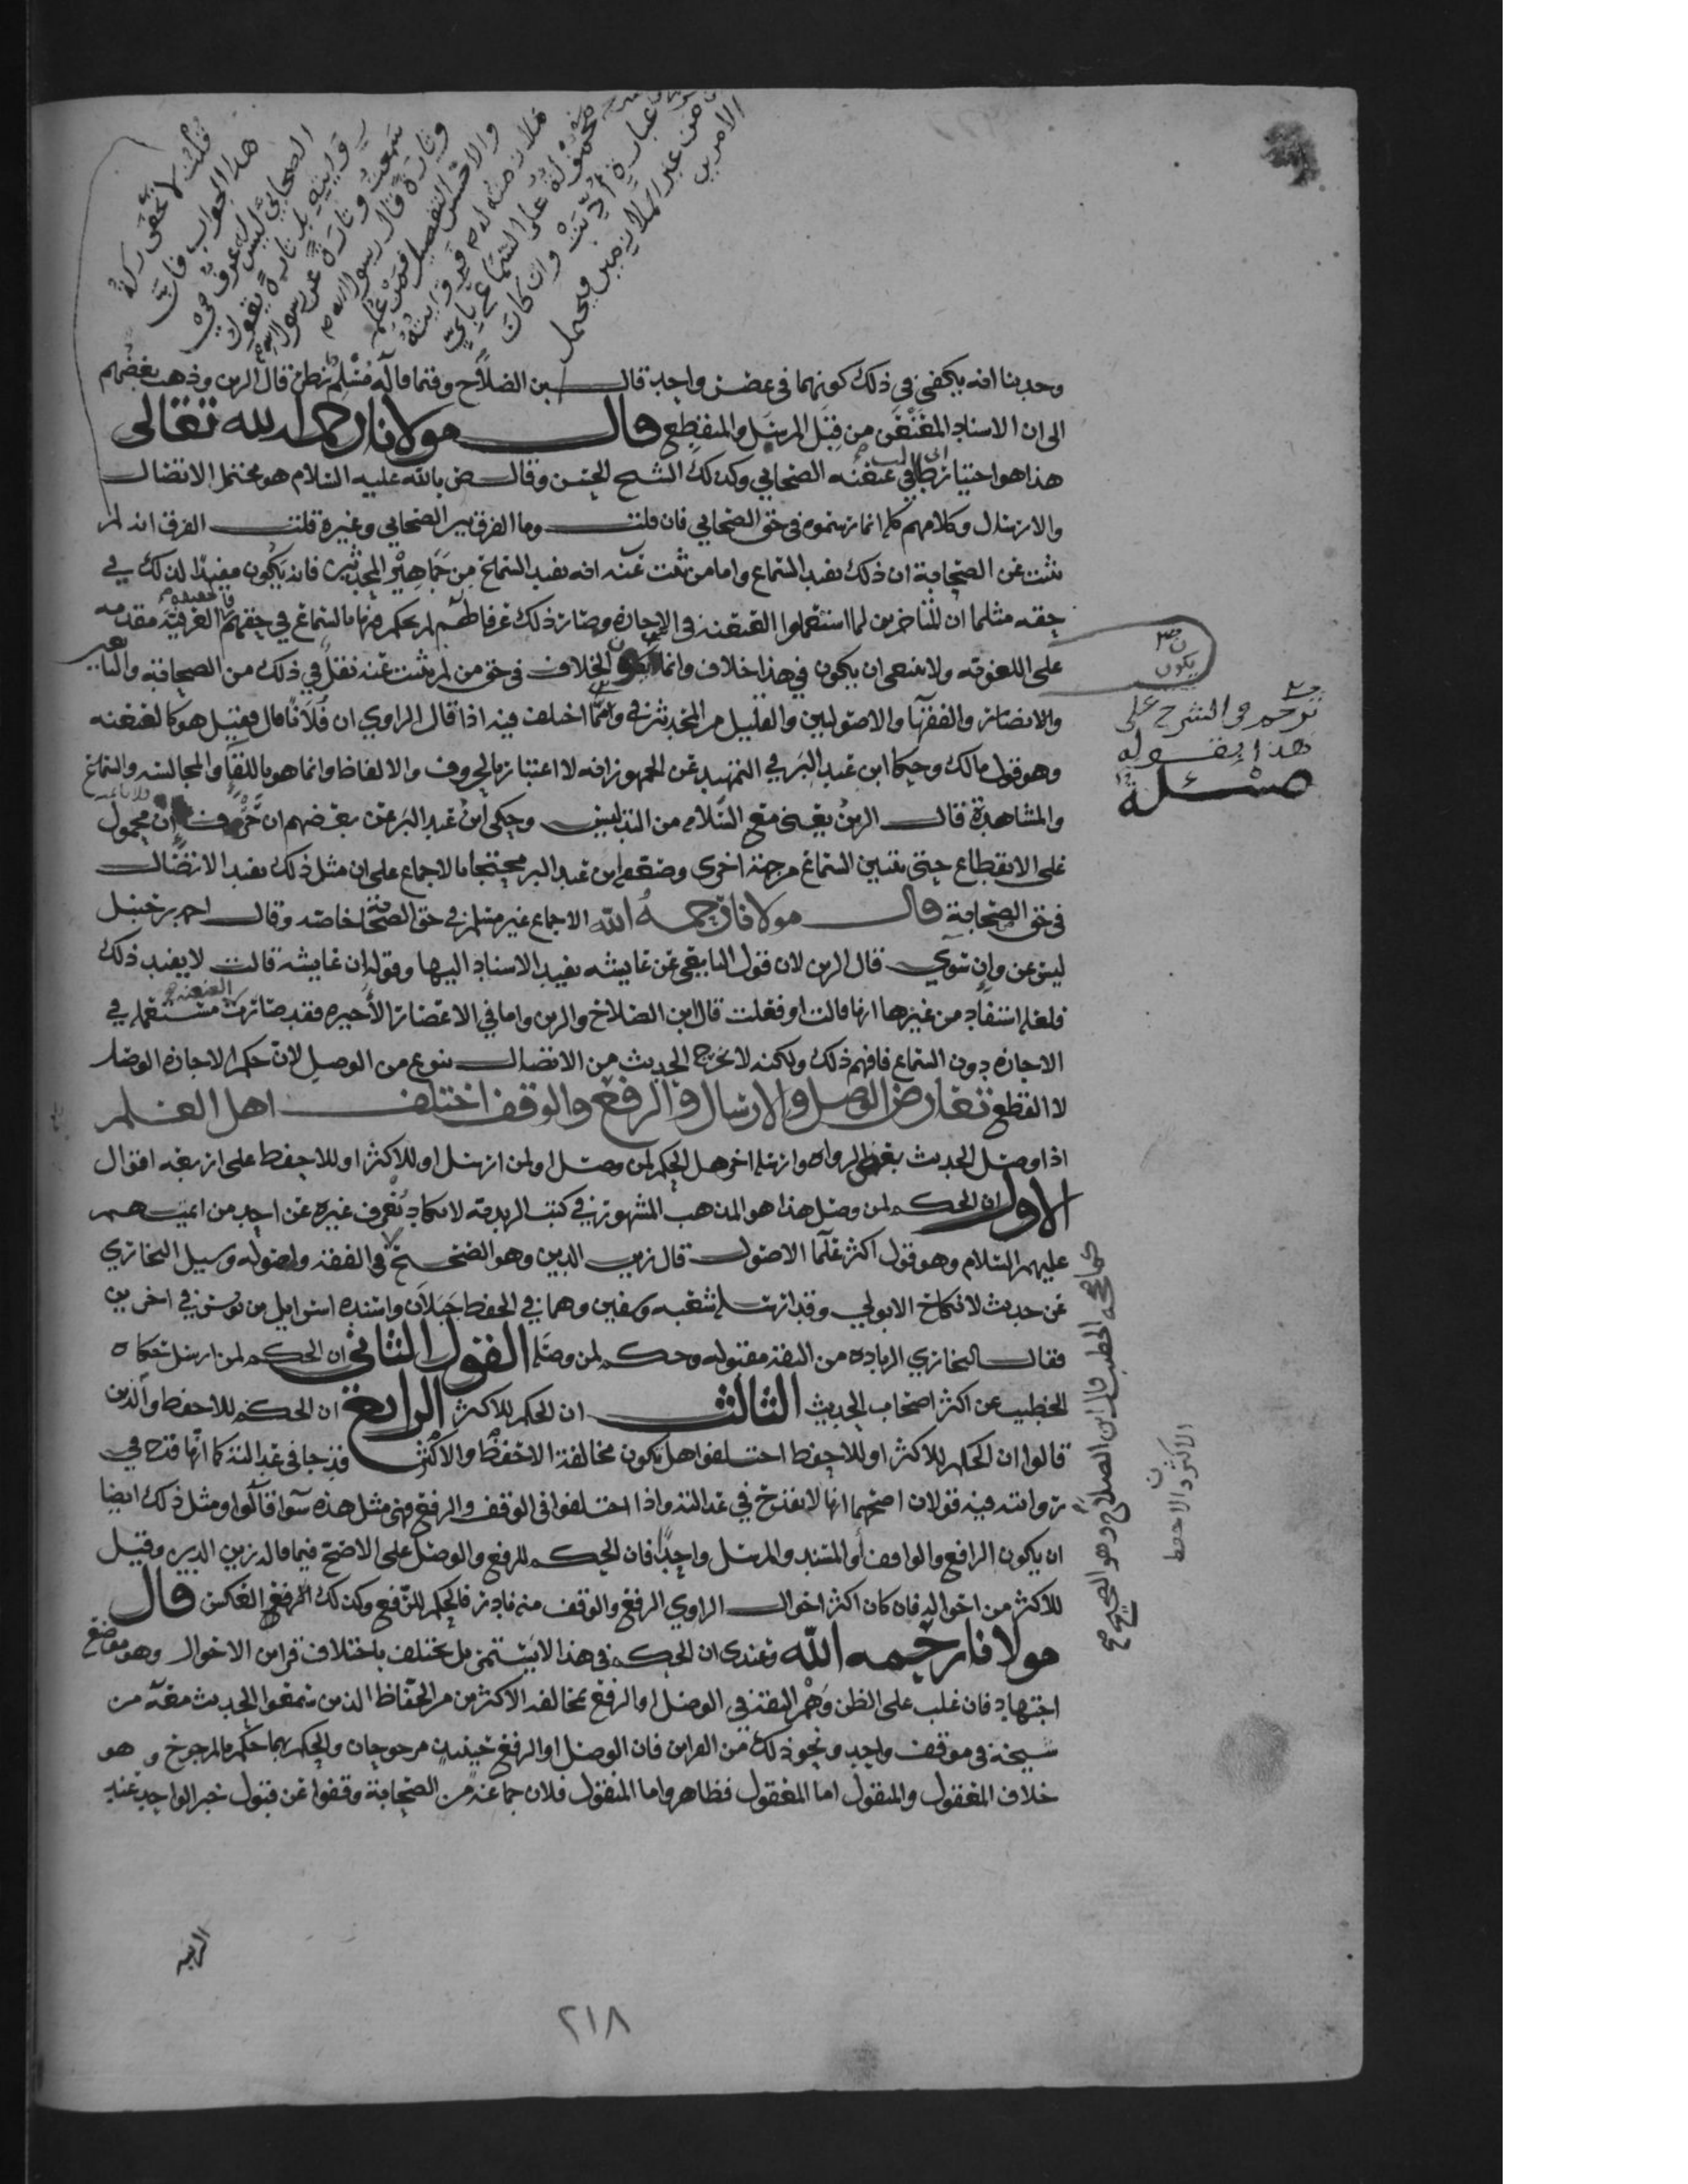 قلت لا تخفى ركة
هذا الجواب فان
الصحابي ليس له عرف في
روايته بل تارة يقول
سمعت وتارة عن رسول الله
وتارة قال رسول الله
والاحسن التفصيل فمن علم
ملازمته له فروايته
محمولة على السماع باي
عبارة أديت وان كانت
من غير الملازمين فيحتمل
الامرين
وحدينا انه يكفي في ذلك كونهما في عصر واحد قال ابن الصلاح وفيما قاله مسلم نظر قال الزين وذهب بعضهم
الى ان الاسناد المعنعن من قبيل المرسل والمنقطع قال مولانا رحمه الله تعالى
هذا هو اختيار ط في عنعنة الصحابي وكذلك الشيخ الحسن وقال ض بالله عليه السلام هو محتمل الاتصال
والارسال وكلامهم كله انما رسموه في حق الصحابي فان قلت وما الفرق بين الصحابي وغيره قلت الفرق انه لم
يثبت عن الصحابة ان ذلك يفيد السماع واما من ثبت عنه انه يفيد السماع من جماهير المحدثين فانه يكون مفيدا لذلك في
حقه مثلما ان المتاخرين لما استعملوا العنعنة في الاجازة وصار ذلك عرفا لهم لم يحكم فيها بالسماع في حقهم العرفية مقدمه
على اللغوية ولا ينبغي ان يكون في هذا خلاف وانما يكون الخلاف في حق من لم يثبت عنه نقل في ذلك من الصحابة والتابعين
ن ص
يكون
والانصار والفقهاء والاصوليين والقليل من المحدثين ومما اختلف فيه اذا قال الراوي ان فلانا قال فقيل هو كالعنعنة
ترجم في الشرح على
هذا بقوله
مسئلة
وهو قول مالك وحكا ابن عبد البر في التمهيد عن الجمهور انه لا اعتبار بالحروف والالفاظ وانما هو باللقاء والمجالسة والسماع
والمشاهدة قال الزين يعني مع السلامه من التدليس وحكى ابن عبد البر عن بعضهم ان حرف ان محمول
على الانقطاع حتى يتبين السماع من جهة اخرى وضعفه ابن عبد البر محتجا بالاجماع على ان مثل ذلك يفيد الاتصال
في حق الصحابة قال مولانا رحمه الله الاجماع غير مسلم في حق الصحابة خاصة وقال احمد بن حنبل
ليس عن وان سوى قال الزين لان قول التابعي عن عايشه يفيد الاسناد اليها وقوله ان عايشه قالت لا يفيد ذلك
فلعله استفاد من غيرها انها قالت او فعلت قال ابن الصلاح والزين واما في الاعصار الأخيره فقد صارت العنعنة مستعمله في
الاجازه دون السماع فافهم ذلك ولكنه لا يخرج الحديث من الاتصال بنوع من الوصل لان حكم الاجازه الوصل
لا القطع تعارض الوصل والارسال والرفع والوقف اختلف اهل العلم
اذا وصل الحديث بعض الرواه وارسله اخر هل الحكم لمن وصل او لمن ارسل او للاكثر او للاحفظ على اربعه اقوال
الاول ان الحكم لمن وصل هذا هو المذهب المشهور في كتب الزيدية لا يكاد يعرف غيره عن احد من ايمتهم
عليهم السلام وهو قول اكثر علما الاصول قال زين الدين وهو الصحيح في الفقه واصوله وسيل البخاري
كما صححه الخطيب قال ابن الصلاح وهو الصحيح صح
عن حديث لا نكاح الا بولي وقد ارسله شعبه وسفين وهما في الحفظ جبلان واسنده اسرايل بن يونس في اخرين
فقال البخاري الزيادة من الثقة مقبوله وحكم لمن وصله القول الثاني ان الحكم لمن ارسل حكاه
الخطيب عن اكثر اصحاب الحديث الثالث ان الحكم للاكثر الرابع ان الحكم للاحفظ والذين
قالوا ان الحكم للاكثر او للاحفظ اختلفوا هل يكون مخالفة الاحفظ والاكثر قدحا في عدالته كما انها قدح في
الاكثر والاحفظ
ن
روايته فيه قولان اصحهما انها لا تقدح في عدالته واذا اختلفوا في الوقف والرفع فهي مثل هذه سوا قالوا ومثل ذلك ايضا
ان يكون الرافع والواقف أو المسند والمرسل واحدًا فان الحكم للرفع والوصل على الاصح فيما قاله زين الدين وقيل
للاكثر من احواله فان كان اكثر احوال الراوي الرفع والوقف منه نادر فالحكم للرفع وكذلك العكس قال
مولانا رحمه الله وعندي ان الحكم في هذا لا يستمر بل يختلف باختلاف قراين الاحوال وهو موضع
اجتهاد فان غلب على الظن وهم الثقة في الوصل او الرفع بمخالفه الاكثرين من الحفاظ الذين سمعوا الحديث معه من
شيخه في موقف واحد ونحو ذلك من القراين فان الوصل او الرفع حينيذ مرجوحان والحكم بهما حكم بالمرجوح وهو
خلاف المعقول والمنقول اما المعقول فظاهر واما المنقول فلان جماعة من الصحابة وقفوا عن قبول خبر الواحد عند
الريبه
٢١٨